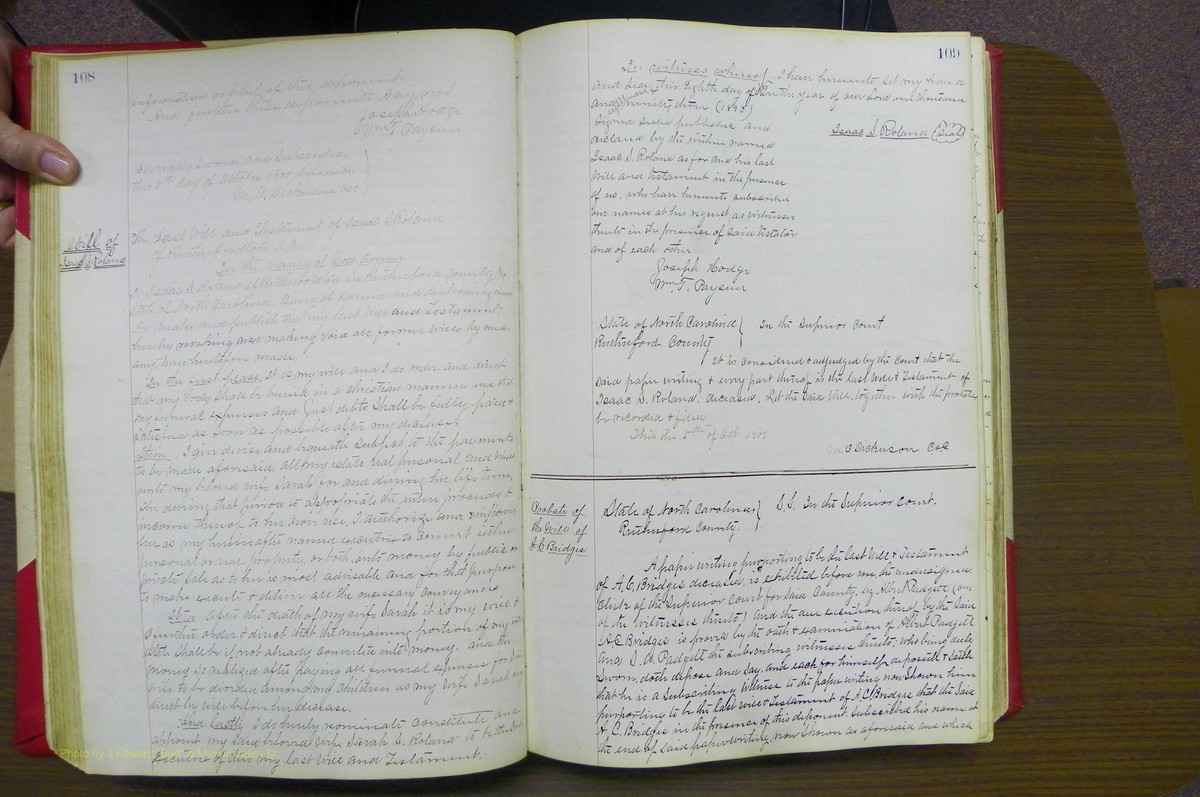 108
information or belief of this deponent
And further these deponents say not.
Joseph Hodge
Wm T. Payseur
Severally Sworn and Subscribed,
this 8th day of October 1901 before me
M. O. Dickerson CSC
Will of
Isaac S. Roland
The Last Will and Testament of Isaac S Roland
of Rutherfordton N.C.
In the name of God Amen
I Isaac S. Roland of Rutherfordton in Rutherford County
State of North Carolina, being of Sound and disposing mind
do make and publish this my last will and Testament,
hereby revoking and making void all former wills by me at
any time heretofore made.
In the first place, It is my will and I do order and direct
that my body shall be buried in a christian manner and that
my funeral expenses and just debts shall be fully paid &
Satisfied as soon as possible after my decease
Item. I give devise and bequeath subject to the payments
to be made aforesaid, all my estate real personal and mixed
unto my beloved wife Sarah for and during her life time,
She during that period to appropriate the entire proceeds &
income thereof to her own use, I authorize and empower
her as my hereinafter named executrix to convert either
personal or real property, or both, into money by public or
private sale as to her is most advisable and for that purpose
to make execute & deliver all the necessary conveyances
Item After the death of my wife Sarah it is my will &
I further order & direct that the remaining portion of my
estate shall be if not already converted into money. And the
money so realized after paying all funeral expenses for said
wife to be divided among my children as my wife Sarah may
direct by will before her decease.
And lastly I do hereby nominate constitute and
appoint my said beloved wife Sarah S. Roland to be the sole
executrix of this my last will and Testament.
109
In witness whereof I have hereunto set my hand
and Seal this Eighth day of September in the year of our Lord one thousand
and ninety three (1893)
Isaac S. Roland (Seal)
Signed sealed published and
declared by the within named
Isaac S. Roland as for and his last
will and testament in the presence
of us, who have hereunto subscribed
our names at his request as witnesses
thereto in the presence of said testator
and of each other
Joseph Hodge
Wm T. Payseur
State of North Carolina } In the Superior Court
Rutherford County
It is Considered & adjudged by the Court that the
said paper writing & every part thereof is the last Will & Testament of
Isaac S. Roland. deceased. Let the Said Will, together with the probate
be recorded & filed
This the 8th of Oct 1901
M. O Dickerson CSC
Probate of
the Will of
A.C Bridges
State of North Carolina, } S.S. In the Superior Court.
Rutherford County.
A paper writing purporting to be the Last Will & Testament
of A. C. Bridges deceased, is exhibited before me, the undersigned,
Clerk of the Superior Court for Said County, by Albert Padgett (one
of the witnesses thereto,) And the due execution thereof by the said
A.C Bridges is proved by the oath & examination of Albert Padgett
and J. A. Padgett the subscribing witnesses thereto, who being duly
Sworn, doth depose and Say, and each for himself deposeth & saith
that he is a Subscribing Witness to the paper writing now shown him
purporting to be the last will & testament of A C Bridges that the said
A C. Bridges in the presence of this deponent Subscribed his name at
the end of said paper writing now shown as aforesaid and which
Photo by J Edward